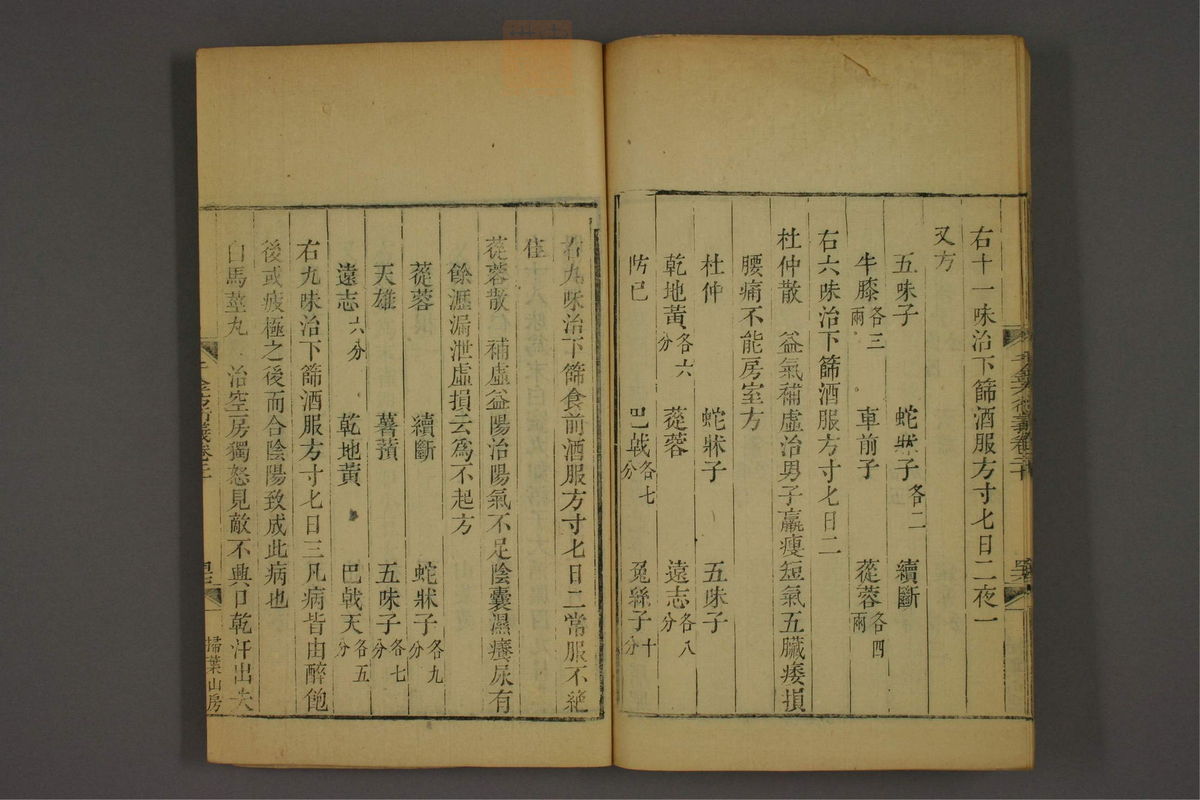 右十一味治下篩酒服方寸匕日二夜一
又方
五味子　蛇牀子各二　續斷
牛膝各三兩　車前子　蓯蓉各四兩
右六味治下篩酒服方寸匕日二
杜仲散　益氣補虛治男子羸瘦短氣五臟痿損
腰痛不能房室方
杜仲　蛇牀子　五味子
乾地黃各六分　蓯蓉　遠志各八分
防已　巴戟各七分　兔絲子十分
右九味治下篩食前酒服方寸匕日二常服不絕
佳
蓯蓉散　補虛益陽治陽氣不足陰囊濕癢尿有
餘瀝漏泄虛損云爲不起方
蓯蓉　續斷　蛇牀子各九分
天雄　薯蕷　五味子各七分
遠志六分　乾地黃　巴戟天各五分
右九味治下篩酒服方寸匕日三凡病皆由醉飽
後或疲極之後而合陰陽致成此病也
白馬莖丸　治空房獨怒見敵不興口乾汗出失
掃葉山房